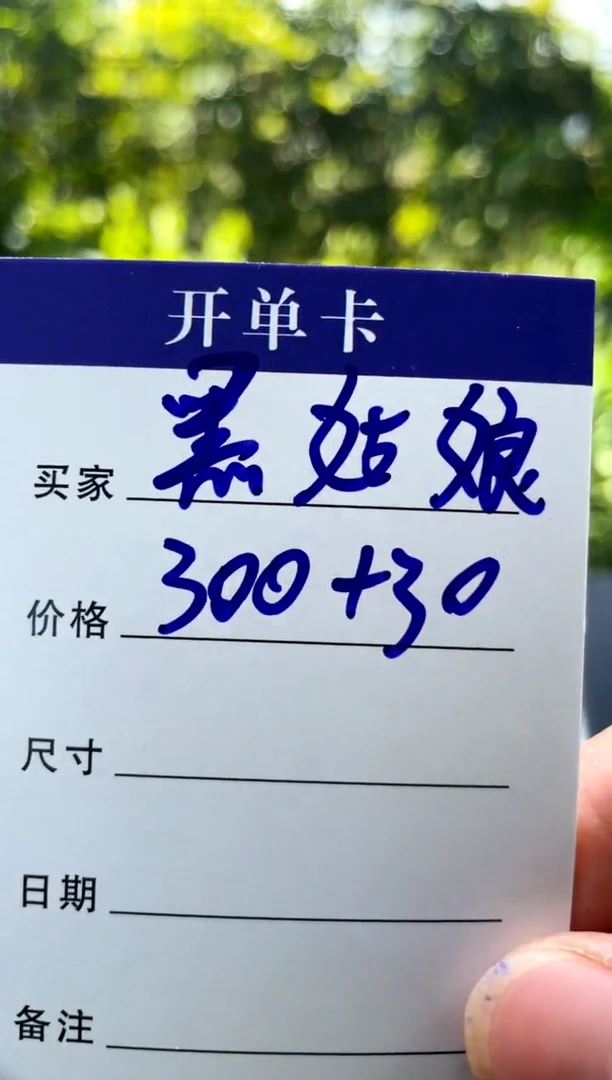 开单卡
买家 黑姑娘
价格 300+30
尺寸
日期
备注